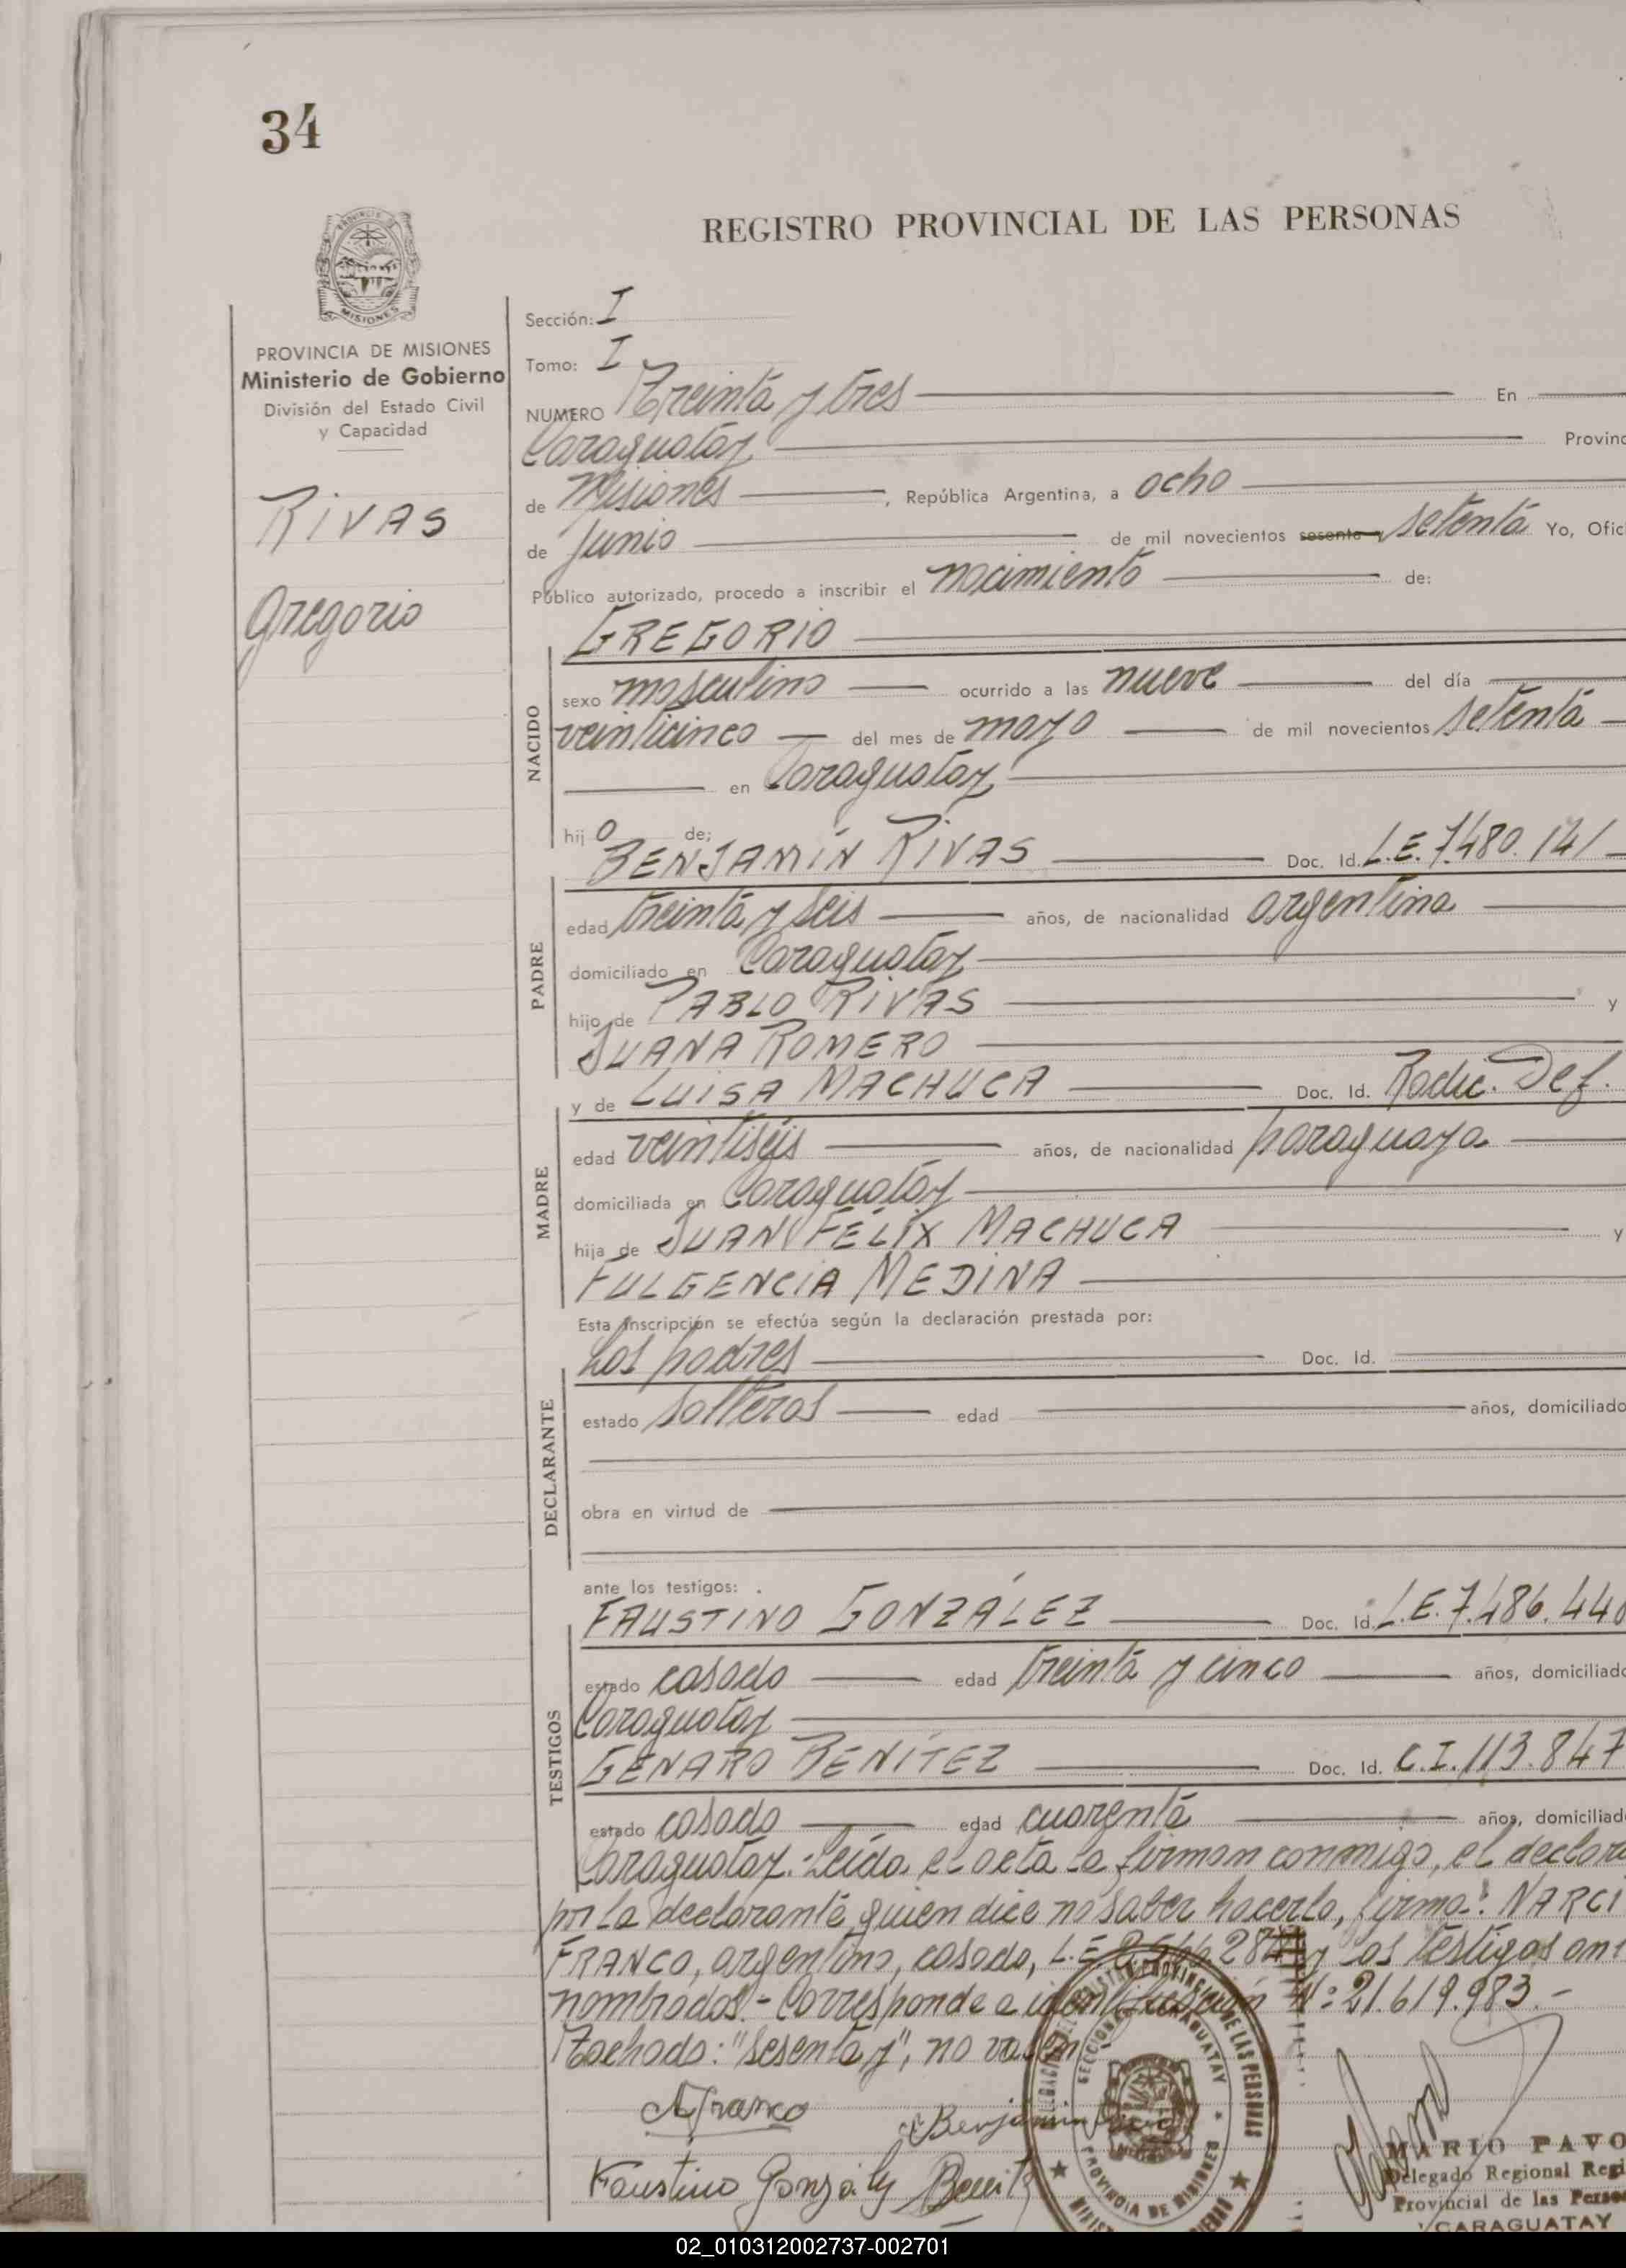 34
REGISTRO PROVINCIAL DE LAS PERSONAS
MISIONES
PROVINCIA DE MISIONES
Ministerio de Gobierno
División del Estado Civil
y Capacidad
RIVAS
Gregorio
Sección: I
Tomo: I
NUMERO Treinta y tres En
Caraguatay Provinc
de Misiones , República Argentina, a ocho
de Junio de mil novecientos sesenta y setenta Yo, Ofic
Público autorizado, procedo a inscribir el nacimiento de:
NACIDO
GREGORIO
sexo masculino ocurrido a las nueve del día
veinticinco del mes de mayo de mil novecientos setenta
en Caraguatay
hij o de;
PADRE
BENJAMÍN RIVAS Doc. Id. L.E. 7.480.141
edad treinta y seis años, de nacionalidad argentina
domiciliado en Caraguatay
hijo de PABLO RIVAS y
JUANA ROMERO
MADRE
y de LUISA MACHUCA Doc. Id. Radic. Def.
edad veintiséis años, de nacionalidad paraguaya
domiciliada en Caraguatay
hija de JUAN FÉLIX MACHUCA y
FULGENCIA MEDINA
Esta inscripción se efectúa según la declaración prestada por:
DECLARANTE
Los padres Doc. Id.
estado solteros edad años, domiciliado
obra en virtud de
ante los testigos:
TESTIGOS
FAUSTINO GONZÁLEZ Doc. Id. L.E. 7.486.440
estado casado edad treinta y cinco años, domiciliado
Caraguatay
GENARO BENÍTEZ Doc. Id. C.I. 113.847
estado casado edad cuarenta años, domiciliad
Caraguatay.- Leída el acta la firman conmigo, el declara
por la declarante quien dice no saber hacerlo, firma: NARCI
FRANCO, argentino, casado, L.E. y los testigos ant
nombrados.- Corresponde a identificación N: 21.619.983.-
Tachado: "sesenta y", no valen
Franco
Benjamin
Faustino Gonzály Benit
SECCIONAL CARAGUATAY
PROVINCIA DE MISIONES
MARIO PAVO
Delegado Regional Regi
Provincial de las Perso
CARAGUATAY
02_010312002737-002701